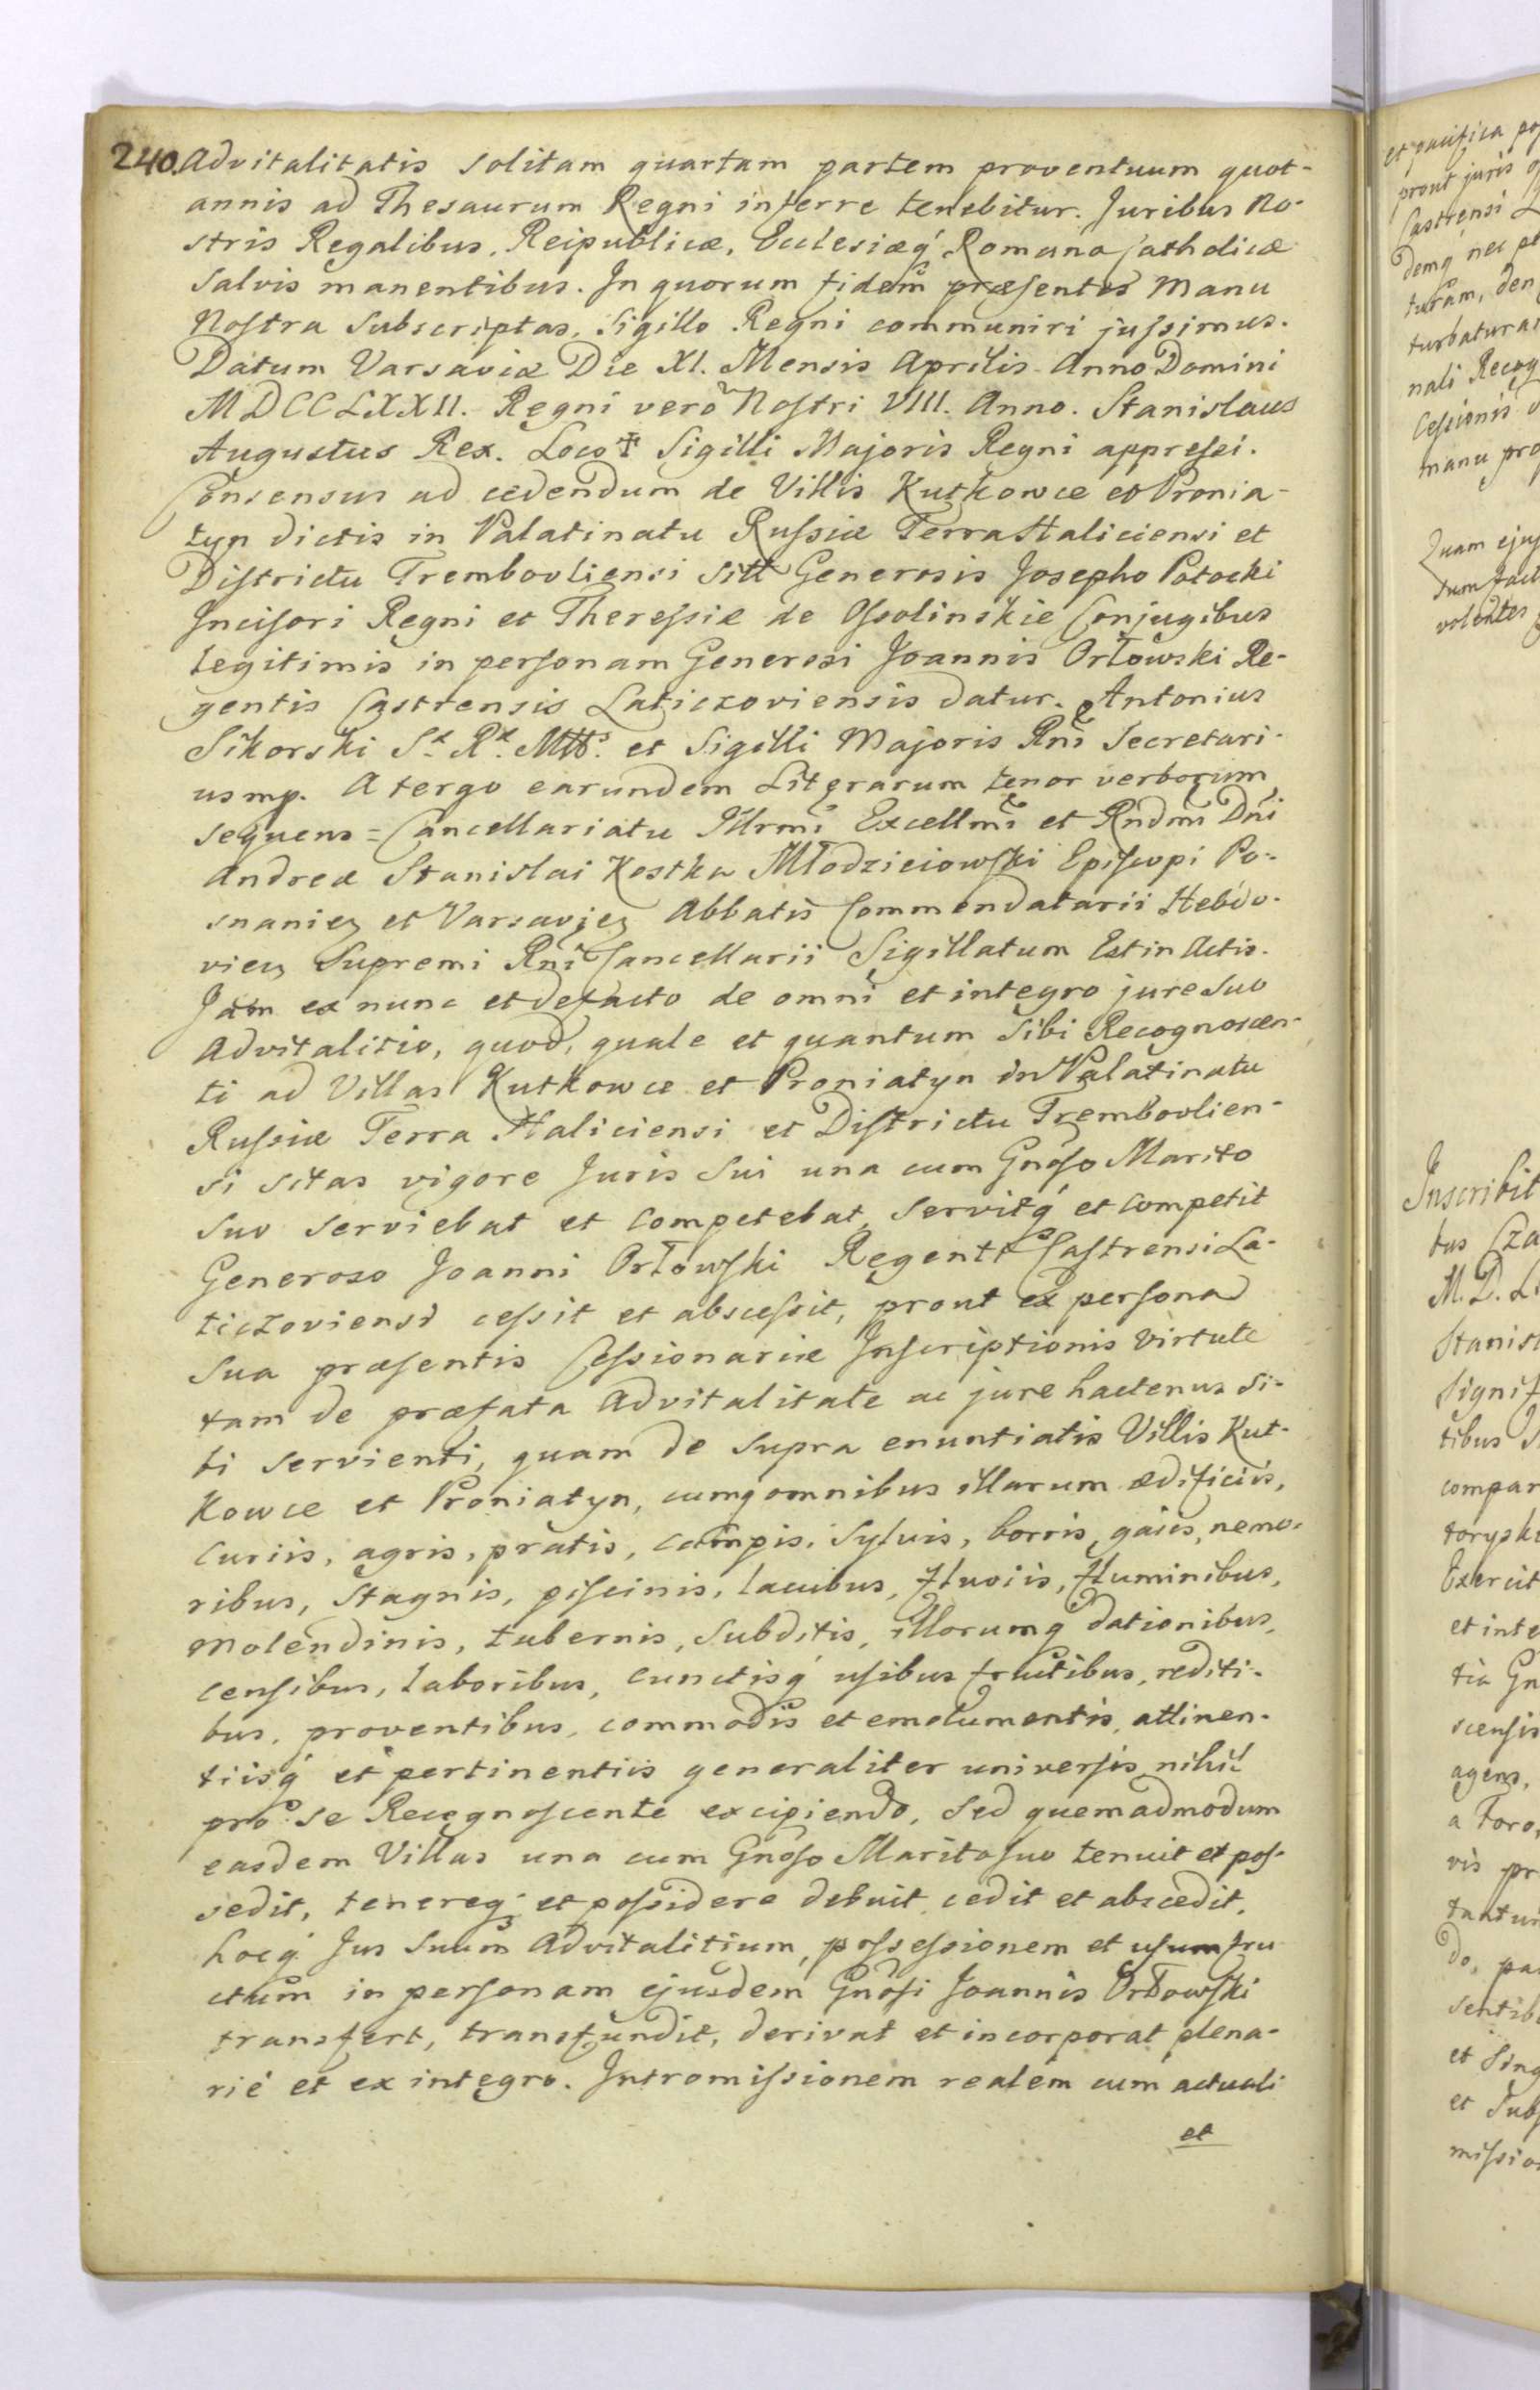 240. Advitalitatis solitam quartam partem proventuum quot-
annis ad Thesaurum Regni inferre tenebitur. Juribus No-
stris Regalibus, Reipublicæ, Ecclesiæq́ Romano Catholicæ
salvis manentibus. In quorum fidem præsentes Manu
Nostra subscriptas, Sigillo Regni communiri jussimus.
Datum Varsaviæ Die XI. Mensis Aprilis Anno Domini
MDCCLXXII. Regni verò Nostri VIII. Anno. Stanislaus
Augustus Rex. Loco ✝ Sigilli Majoris Regni appressi.
Consensus ad cedendum de Villis Kutkowce et Pronia-
tyn dictis in Palatinatu Russiæ Terra Haliciensi et
Districtu Trembovliensi sitt Generosis Josepho Potocki
Incisori Regni et Theressiæ de Ossolinskie Conjugibus
legitimis in personam Generosi Joannis Orłowski Re-
gentis Castrensis Laticzoviensis datur. Antonius
Sikorski Sæ Ræ Mttis et Sigilli Majoris Rñi Secretari-
us mp. A tergo earundem Literarum tenor verborum
sequens = Cancellariatu Illrmi Excellmi et Rndmi Dñi
Andreæ Stanislai Kostka Młodzieiowski Episcopi Po-
snanien et Varsavien Abbatis Commendatarii Hebdo-
vien Supremi Rñi Cancellarii Sigillatum Est in Actis.
Jam ex nunc et de facto de omni et integro jure suo
advitalitio, quod, quale et quantum sibi Recognoscen-
ti ad Villas Kutkowce et Proniatyn in Palatinatu
Russiæ Terra Haliciensi et Districtu Trembovlien-
si sitas vigore Juris sui una cum Gnoso Marito
suo serviebat et competebat, servitq́ et competit
Generoso Joanni Orłowski Regenti Castrensi La-
ticzoviensi cessit et abscessit, prout ex persona
sua præsentis Cessionariæ Inscriptionis virtute
tam de præfata Advitalitate ac jure hactenus si-
bi servienti, quam de supra enuntiatis Villis Kut-
kowce et Proniatyn, cumq omnibus illarum ædificiis,
curiis, agris, pratis, campis, sylvis, borris, gaies, nemo-
ribus, stagnis, piscinis, lacubus, fluviis, fluminibus,
molendinis, tabernis, subditis, illorumq dationibus,
censibus, laboribus, cunctisq́ usibus fructibus, rediti-
bus, proventibus, commodis et emolumentis, attinen-
tiisq́ et pertinentiis generaliter universis nihil
pro se Recognoscente excipiendo, sed quemadmodum
easdem Villas una cum Gnoso Marito suo tenuit et pos-
sedit, tenereq et possidere debuit cedit et abscedit,
hocq́ Jus suum Advitalitium, possessionem et usumfru
ctum in personam ejusdem Gnosi Joannis Orłowski
transfert, transfundit, derivat et incorporat plena-
rié et ex integro. Intromissionem realem cum actuali
et
et pacifica
prout juris
Castrensi
demq nec
turam, den
nali Recog
Cessionis
manu pro
Quam ejus
volentes
Inscribit
tus Cza
Stanis
signif
tibus
compar
torysk
Exercit
et inte
tia Gn
scensis
agens,
a Foro,
vis pr
tantu
do, pa
sentib
et sing
et subs
missio